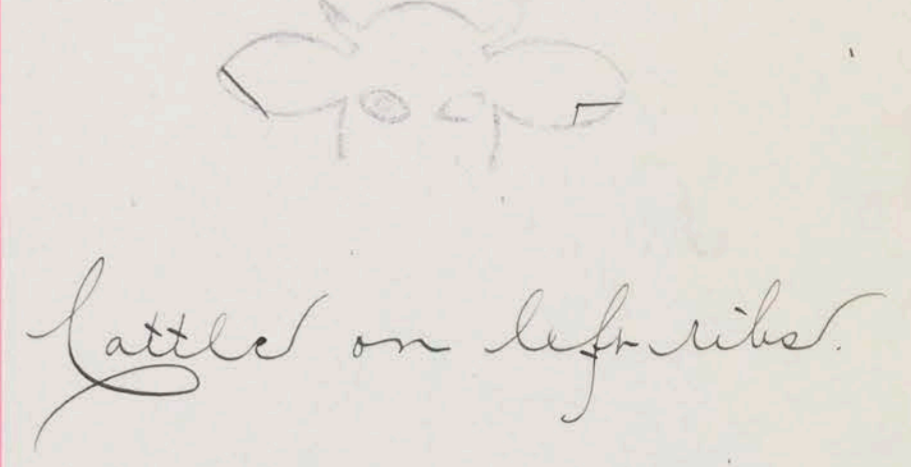 Cattle on left ribs.